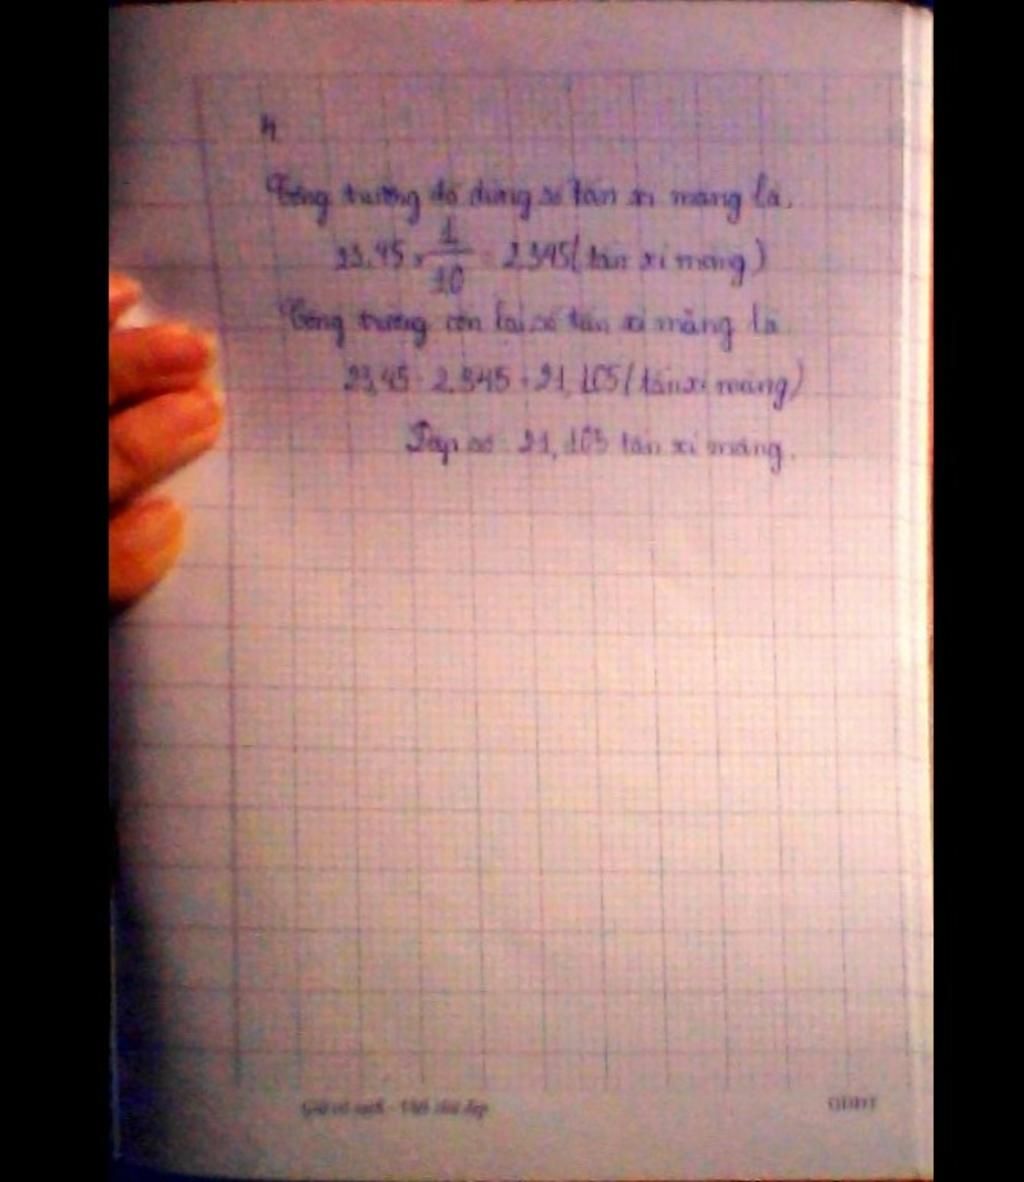 4
Công trường đã dùng số tấn xi măng là.
23,45 x 1/10 = 2,345 (tấn xi măng)
Công trường còn lại số tấn xi măng là
23,45 - 2,345 = 21,105 (tấn xi măng)
Đáp số: 21,105 tấn xi măng.
Giữ vở sạch - Viết chữ đẹp